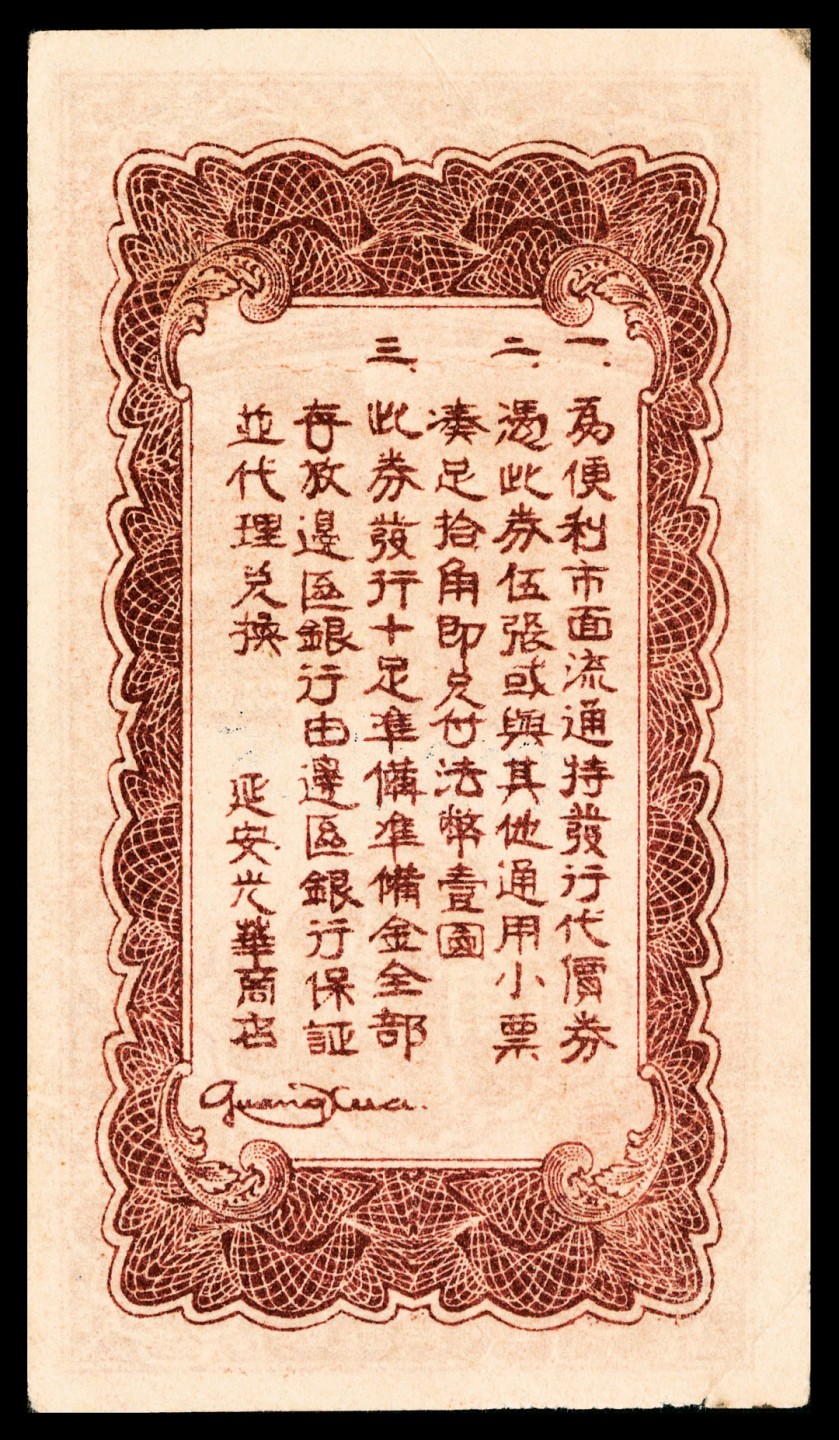 一、為便利市面流通持發行代價券
二、憑此券伍張或與其他通用小票
湊足拾角即兌付法幣壹圓
三、此券發行十足準備準備金全部
存放邊區銀行由邊區銀行保証
並代理兌換
延安光華商店
Guang Xua.